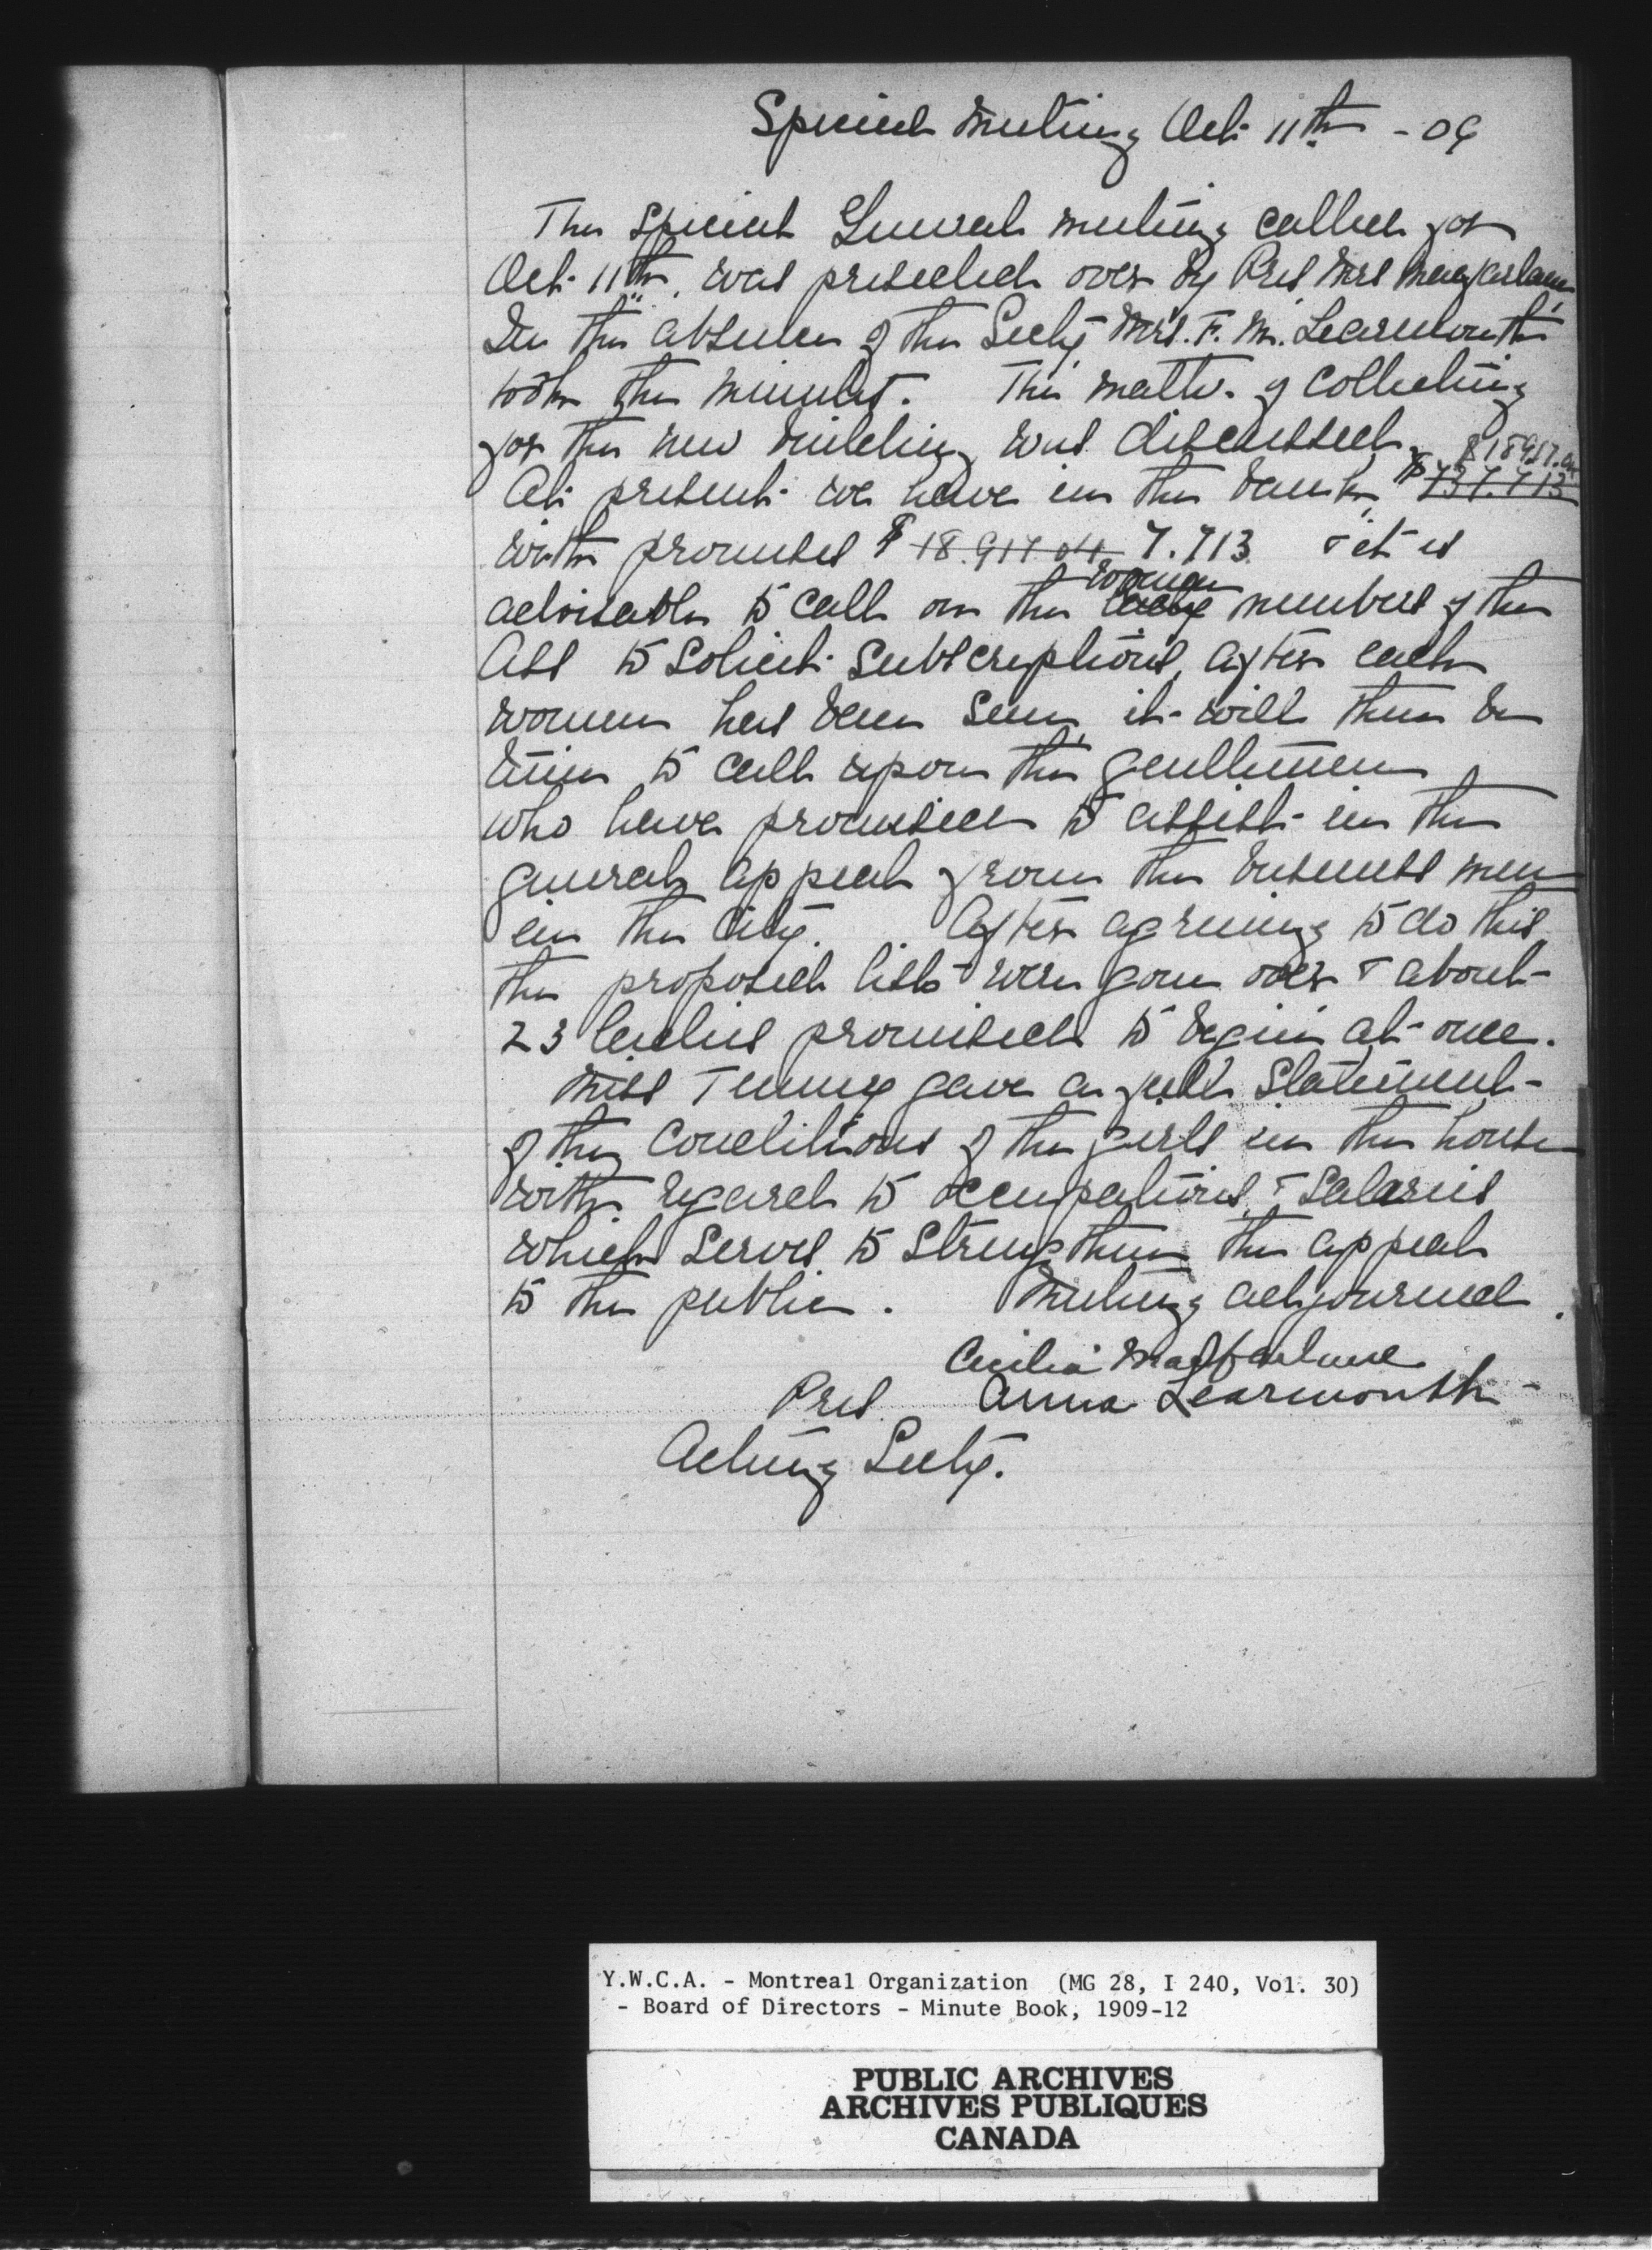 Special Meeting Oct 11th - 09
The Special General meeting called for
Oct. 11th, was presided over by Pres Mrs Macfarlane,
In the absence of the Secty Mrs. F. M. Learmonth
took the minutes. The matter of collecting
for the new building was discussed.
At present we have in the bank,
with promises $ 7.713 & it is
advisable to call on the lady woman members of the
Ass to solicit subscriptions, after each
women has been seen, it will then be
time to call upon the gentlemen
who have promised to assist in the
general appeal from the business men
in the City. After agreeing to do this
the proposed lists were gone over & about
23 ladies promised to begin at once.
Miss Tenney gave a full statement
of the conditions of the girls in the house
with regard to occupations & salaries
which serves to strengthen the appeal
to the public. Meeting adjourned.
Cecilia Macfarlane
Pres. Anna Learmonth
Acting Secty.
Y.W.C.A. - Montreal Organization (MG 28, I 240, Vol. 30)
- Board of Directors - Minute Book, 1909-12
PUBLIC ARCHIVES
ARCHIVES PUBLIQUES
CANADA